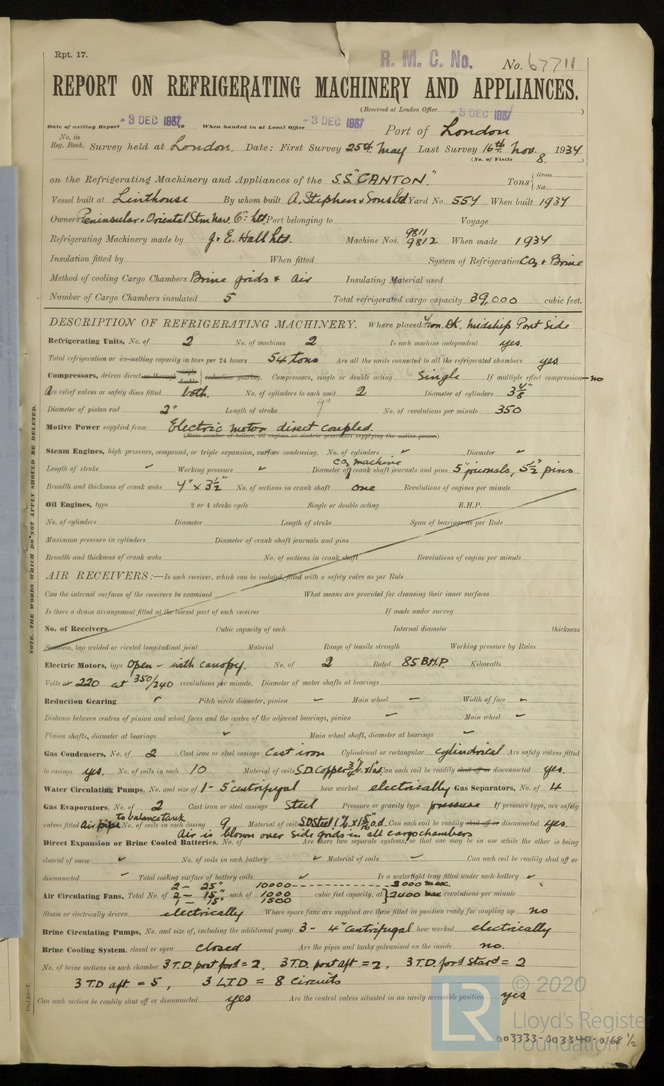 Rpt. 17.
R. M. C. No.
No. 67711
REPORT ON REFRIGERATING MACHINERY AND APPLIANCES.
(Received at London Office -3 DEC 1937)
Date of writing Report -3 DEC 1937 19 When handed in at Local Office -3 DEC 1937 Port of London
No. in Reg. Book. Survey held at London. Date: First Survey 25th May Last Survey 16th Nov. 1937
(No. of Visits 8
on the Refrigerating Machinery and Appliances of the S.S "CANTON." Tons Gross Net
Vessel built at Linthouse By whom built A. Stephen & Sons Ltd Yard No. 554 When built 1937
Owners Peninsular & Oriental Stm Nav. Co. Ltd. Port belonging to Voyage
Refrigerating Machinery made by J & E. Hall Ltd. Machine Nos. 9811 9812 When made 1937
Insulation fitted by When fitted System of Refrigeration CO2 & Brine
Method of cooling Cargo Chambers Brine grids & air Insulating Material used
Number of Cargo Chambers insulated 5 Total refrigerated cargo capacity 39,000 cubic feet.
DESCRIPTION OF REFRIGERATING MACHINERY. Where placed Dk. midship Port side
Refrigerating Units, No. of 2 No. of machines 2 Is each machine independent yes.
Total refrigeration or ice-melting capacity in tons per 24 hours 54 tons Are all the units connected to all the refrigerated chambers yes
Compressors, driven direct or through single double reduction gearing. Compressors, single or double acting Single If multiple effect compression no
Are relief valves or safety discs fitted both. No. of cylinders to each unit 2 Diameter of cylinders
Diameter of piston rod 2" Length of stroke 9" No. of revolutions per minute 350
Motive Power supplied from Electric motor direct coupled.
(State number of boilers, oil engines or electric generators supplying the motive power)
Steam Engines, high pressure, compound, or triple expansion, surface condensing. No. of cylinders " Diameter "
Length of stroke " Working pressure " Diameter of CO2 machine crank shaft journals and pins 5" journals, 5½" pins
Breadth and thickness of crank webs 4" x 3½" No. of sections in crank shaft one Revolutions of engines per minute
Oil Engines, type 2 or 4 stroke cycle Single or double acting B.H.P.
No. of cylinders Diameter Length of stroke Span of bearings as per Rule
Maximum pressure in cylinders Diameter of crank shaft journals and pins
Breadth and thickness of crank webs No. of sections in crank shaft Revolutions of engine per minute
AIR RECEIVERS:—Is each receiver, which can be isolated, fitted with a safety valve as per Rule
Can the internal surfaces of the receivers be examined What means are provided for cleansing their inner surfaces
Is there a drain arrangement fitted at the lowest part of each receiver If made under survey
No. of Receivers Cubic capacity of each Internal diameter thickness
Seamless, lap welded or riveted longitudinal joint Material Range of tensile strength Working pressure by Rules
Electric Motors, type Open - with canopy. No. of 2 Rated 85 B.H.P. Kilowatts
Volts 220 at 350/240 revolutions per minute. Diameter of motor shafts at bearings
Reduction Gearing Pitch circle diameter, pinion Main wheel Width of face
Distance between centres of pinion and wheel faces and the centre of the adjacent bearings, pinion Main wheel
Pinion shafts, diameter at bearings Main wheel shaft, diameter at bearings
Gas Condensers, No. of 2 Cast iron or steel casings Cast iron Cylindrical or rectangular cylindrical Are safety valves fitted
to casings yes. No. of coils in each 10 Material of coils S.D. Copper Can each coil be readily shut off or disconnected yes.
Water Circulating Pumps, No. and size of 1 - 5" centrifugal how worked electrically Gas Separators, No. of 4
Gas Evaporators, No. of 2 Cast iron or steel casings Steel Pressure or gravity type pressure If pressure type, are safety
valves fitted air pipe to balance tank No. of coils in each casing 9 Material of coils S.D. Steel Can each coil be readily shut off or disconnected yes.
Air is blown over side grids in all cargo chambers
Direct Expansion or Brine Cooled Batteries, No. of Are there two separate systems, so that one may be in use while the other is being
cleared of snow No. of coils in each battery Material of coils Can each coil be readily shut off or
disconnected Total cooling surface of battery coils Is a watertight tray fitted under each battery
Air Circulating Fans, Total No. of 2 - 25" 2 - 15" 1 - 15" each of 10000 1000 1500 cubic feet capacity, at 2000 max. 2400 max revolutions per minute
Steam or electrically driven electrically Where spare fans are supplied are these fitted in position ready for coupling up no
Brine Circulating Pumps, No. and size of, including the additional pump 3 - 4" centrifugal how worked electrically
Brine Cooling System, closed or open closed Are the pipes and tanks galvanised on the inside no.
No. of brine sections in each chamber 3 T.D. port ford = 2, 3 T.D. port aft = 2, 3 T.D. ford starb = 2
3 T.D aft = 5, 3 LTD = 8 Circuits
Can each section be readily shut off or disconnected yes Are the control valves situated in an easily accessible position yes
NOTE.—THE WORDS WHICH DO NOT APPLY SHOULD BE DELETED.
© 2020
LR
Lloyd's Register
Foundation
003333-003340-0168 1/2